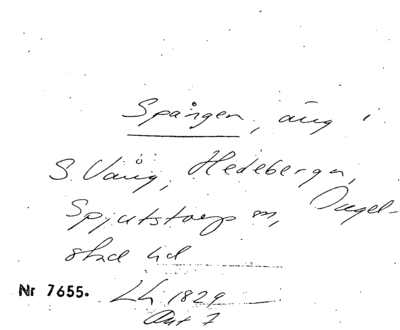 Spången, äng i
S. Vång, Hedebergn,
Spjutstorp sn, Ingel-
stad hd
Nr 7655. Lh 1829
Akt 7